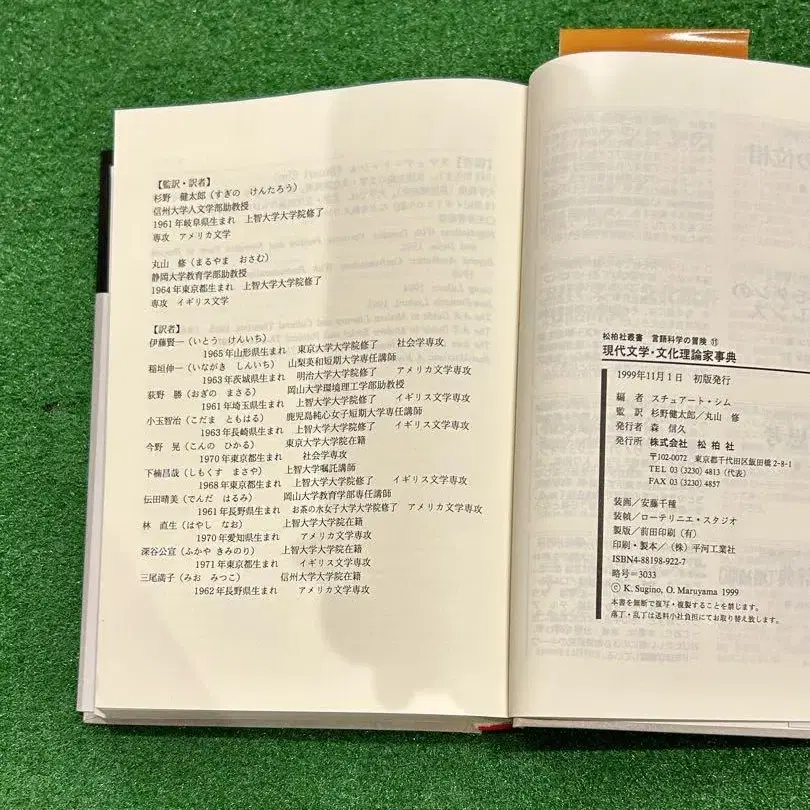 【監訳・訳者】
杉野 健太郎（すぎの けんたろう）
信州大学人文学部助教授
1961年岐阜県生まれ 上智大学大学院修了
専攻 アメリカ文学
丸山 修（まるやま おさむ）
静岡大学教育学部助教授
1964年東京都生まれ 上智大学大学院修了
専攻 イギリス文学
【訳者】
伊藤賢一（いとう けんいち）
1965年山形県生まれ 東京大学大学院修了 社会学専攻
稲垣伸一（いながき しんいち） 山梨英和短期大学専任講師
1963年茨城県生まれ 明治大学大学院修了 アメリカ文学専攻
荻野 勝（おぎの まさる） 岡山大学環境理工学部助教授
1961年埼玉県生まれ 上智大学大学院修了 イギリス文学専攻
小玉智治（こだま ともはる） 鹿児島純心女子短期大学専任講師
1963年長崎県生まれ 上智大学大学院修了 イギリス文学専攻
今野 晃（こんの ひかる） 東京大学大学院在籍
1970年東京都生まれ 社会学専攻
下楠昌哉（しもくす まさや） 上智大学嘱託講師
1968年東京都生まれ 上智大学大学院修了 イギリス文学専攻
伝田晴美（でんだ はるみ） 岡山大学教育学部専任講師
1961年長野県生まれ お茶の水女子大学大学院修了 アメリカ文学専攻
林 直生（はやし なお） 上智大学大学院在籍
1970年愛知県生まれ アメリカ文学専攻
深谷公宣（ふかや きみのり） 上智大学大学院在籍
1971年東京都生まれ イギリス文学専攻
三尾満子（みお みつこ） 信州大学大学院在籍
1962年長野県生まれ アメリカ文学専攻
松柏社叢書 言語科学の冒険 ⑪
現代文学・文化理論家事典
1999年11月1日 初版発行
編者 スチュアート・シム
監訳 杉野健太郎／丸山 修
発行者 森 信久
発行所 株式会社 松柏社
〒102-0072 東京都千代田区飯田橋2-8-1
TEL 03 (3230) 4813（代表）
FAX 03 (3230) 4857
装画／安藤千種
装幀／ローテリニエ・スタジオ
製版／前田印刷（有）
印刷・製本／（株）平河工業社
ISBN4-88198-922-7
略号＝3033
© K. Sugino, O. Maruyama 1999
本書を無断で複写・複製することを禁じます。
落丁・乱丁は送料小社負担にてお取り替え致します。